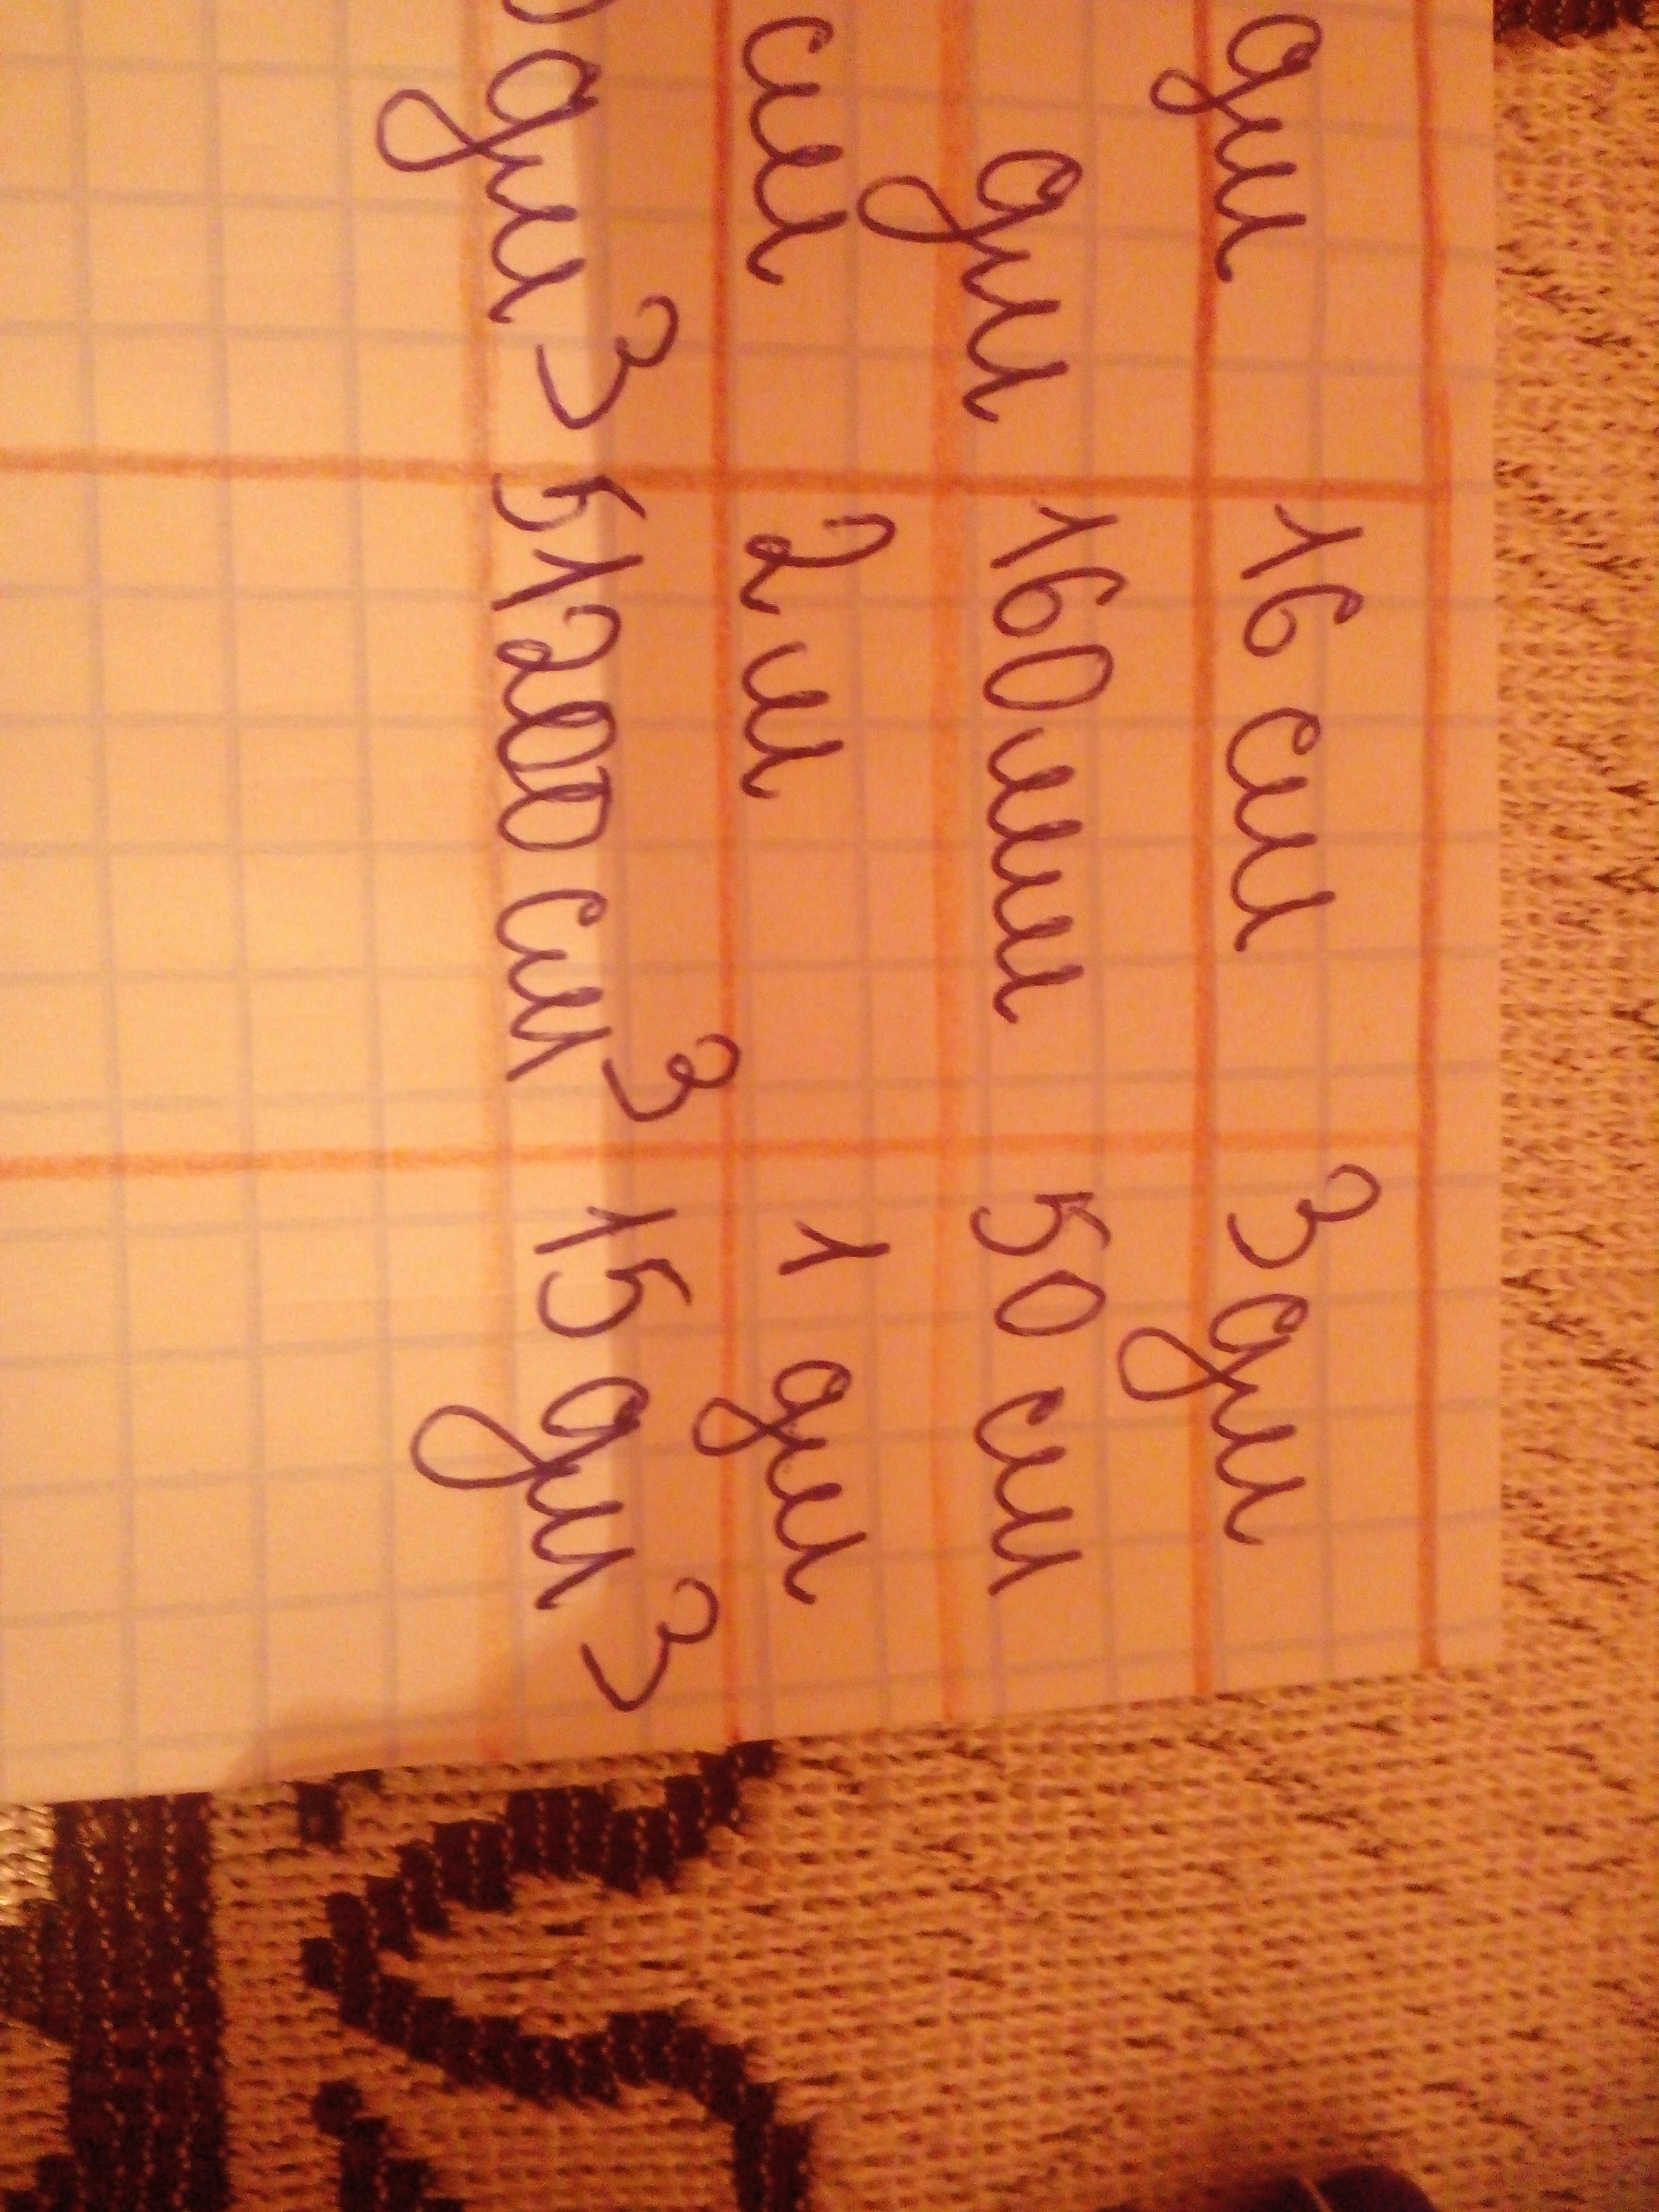 дм 16 см 3 дм
дм 160 мм 50 см
см 2 м 1 дм
дм3 51200 см3 15 дм3